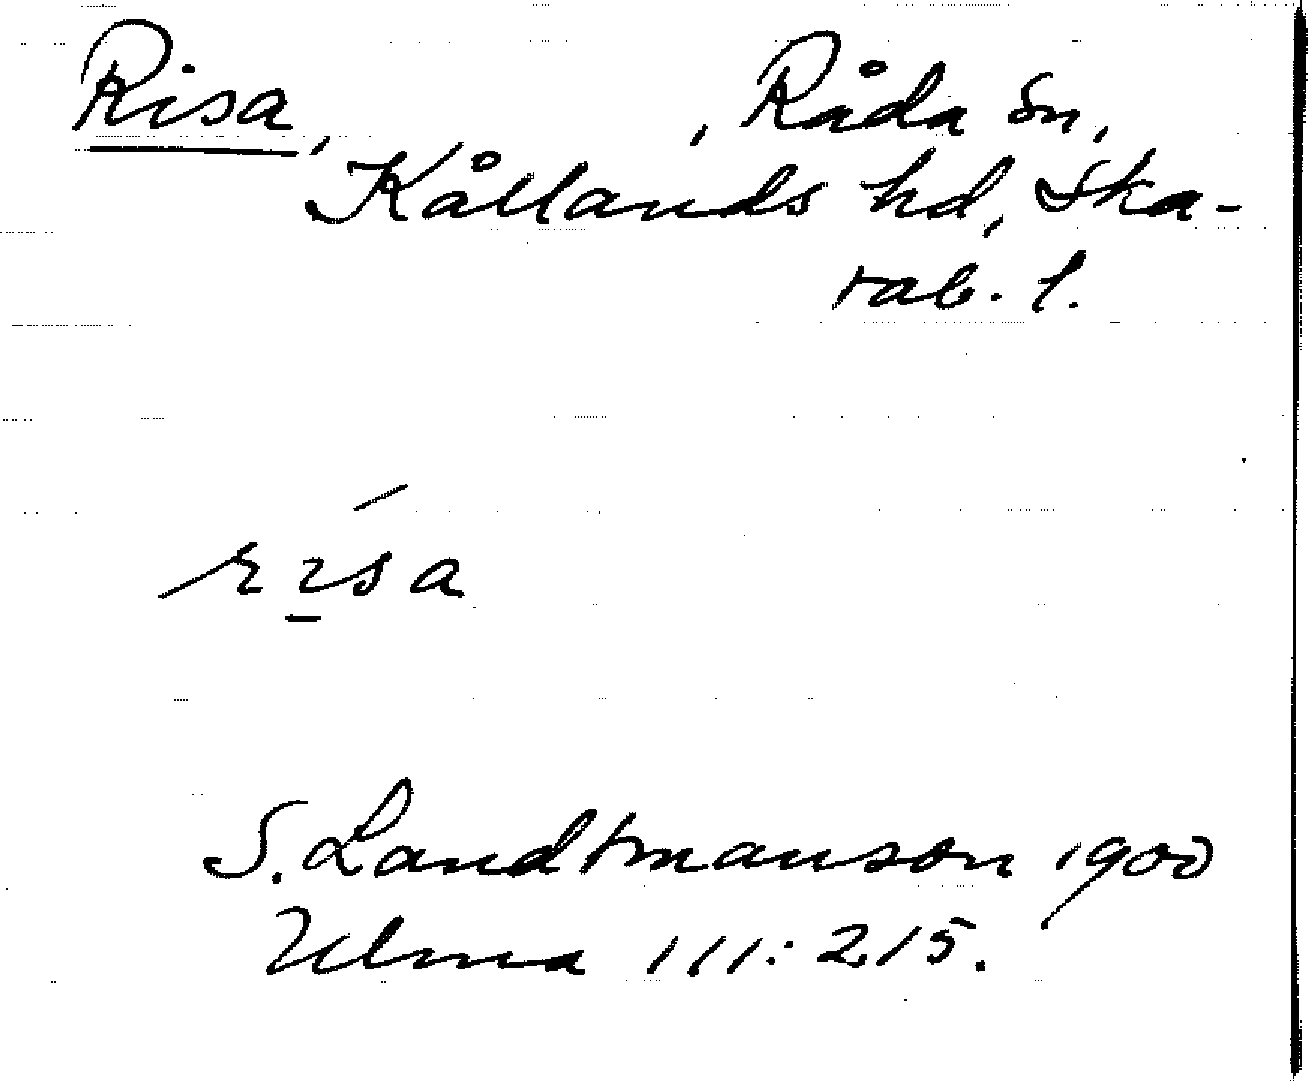 Risa, , Råda sn,
Kållands hd, Ska-
rab. l.
rısa
S. Landtmanson 1900
Ulma 111:215.